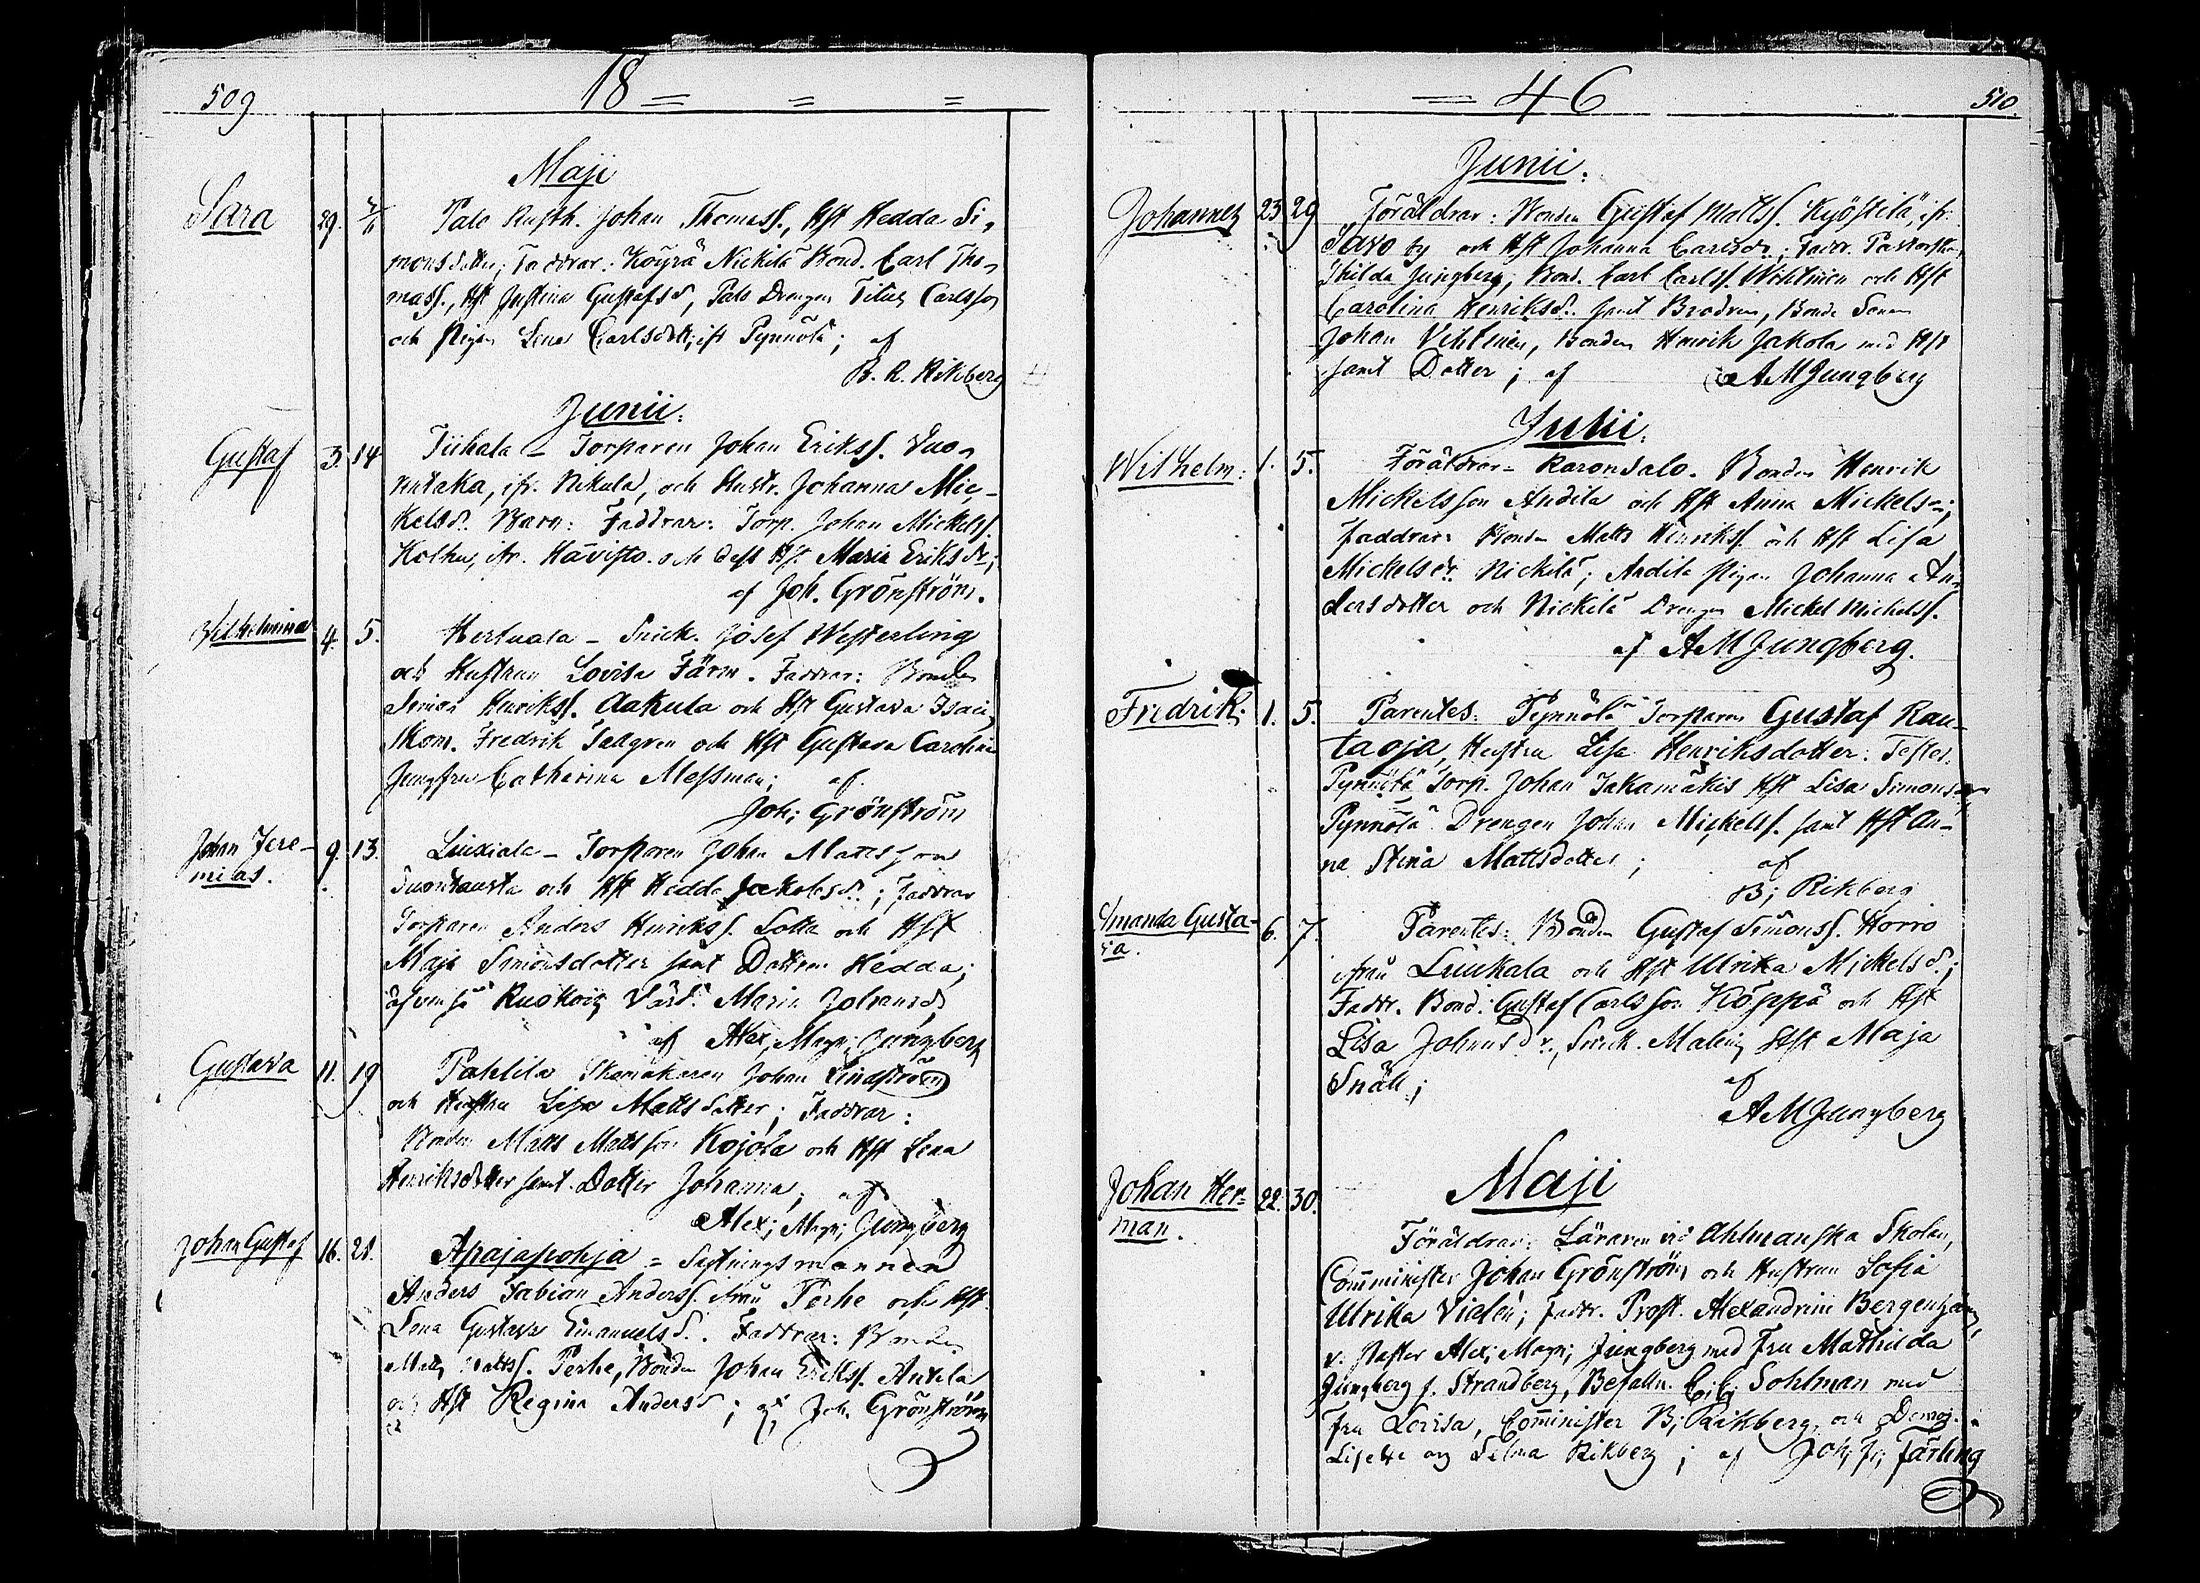 509
18 = = =
Maji
Sara 29. 2/6 Palo Rusth. Johan Thomass., Hst Hedda Si-
monsdotter; Faddrar: Köyrä Nickilä Bond. Carl Tho-
mass., Hst Justina Gustafsd, Palo Drengen Titus Carlsson
och Pigan Lena Carlsdott; ifr Pynnölä; af
B. R. Rikberg
Junii.
Gustaf 3. 14 Tiihala – Torparen Johan Erikss. Vuo-
rentaka, ifr. Nikula, och Hustr. Johanna Mic-
kelsd. Barn: Faddrar: Torp. Johan Mickelss.
ifr. Hävisto. och dess Hst. Maria Eriksdr;
af Joh. Grönström.
Wilhelmina 4. 5. Hertuala – Snick. Josef Westerling
och Hustrun Lovisa Färm. Faddrar: Bonden
Simon Henrikss. Aakula och Hst Gustava Isacs,
Skom. Fredrik Tallgren och Hst Gustava Carolina
Jungfru Catharina Messman; af
Joh; Grönström
Johan Jere- 9. 13. Liuxiala – Torparen Johan Mattsson
milas. Suontausta och Hst Hedda Jakobsd.; Faddrar
Torparen Anders Henrikss. Sotka och Hst
Maja Simonsdotter samt Dottren Hedda;
äfvenså Maria Johansd,
af Alex; Magn; Jungberg
Gustava 11. 19 Pahlila Skomakaren Johan Lindström
och Hustru Lisa Matts dotter; Faddrar:
Bonden Matts Mattsson Kojola och Hst Lena
Henriksdotter samt Dotter Johanna; af
Alex; Magn; Jungberg
Johan Gustaf 16. 21. Apajapohja = Sytningsmannen
Anders Fabian Anderss. ifrån Perhe och Hst.
Lena Gustava Emanuelsd. Faddrar: Bonden
Matts Mattss. Perhe, Bonden Johan Erikss. Anttila
och Hst Regina Andersd; af Joh. Grönström
= 46 510.
Junii.
Johannes 23. 29 Föräldrar: Bonden Gustaf Mattss. Kyöstilä, ifr.
Saxo by och Hst Johanna Carlsdr.; Faddr. Pastorskan
Thilda Jungberg, Bond. Carl Carlss. Wihtinen och Hst
Carolina Henriksd. samt Brodren, Bonde Sonen
Johan Vihtinen, Bonden Henrik Jakola med Hst
samt Dotter; af AMJungberg
Julii.
Wilhelm: 1. 5. Föräldrar – Raronsalo. Bonden Henrik
Mickelsson Andila och Hst Anna Mickelsdr;
Faddrar: Bonden Matts Henrikss. och Hst Lisa
Mickelsdr. Nickilä; Andila Pigan Johanna An-
dersdotter och Nickilä Drengen Mickel Mickelss.
af AMJungberg.
Fredrik; 1. 5. Parentes: Pynnölä Torparen Gustaf Rau-
taoja, Hustru Lisa Henriksdotter: Testes.
Pynnölä Torp. Johan Takamäkis Hst Lisa Simonsdr,
Pynnölä Drengen Johan Mickelss. samt Hst An-
na Stina Mattsdotter; af
B; Rikberg
Amanda Gusta- 6. 7. Parentes: Bonden Gustaf Simonss. Horro
va. ifrån Liuksiala och Hst Ulrika Mickelsd.;
Faddr. Bond: Gustaf Carlsson Köppä och Hst
Lisa Johansdr., Snick. Malins Hst Maja
Snäll; af
AMJungberg
Maji
Johan Her- 22. 30. Föräldrar: Läraren vid Ahlmanska Skolan,
man. Comminister Johan Grönström och Hustrun Sofia
Ulrika Vidlén; Faddr. Prost. Alexandrine Bergenhjem,
v. Pastor Alex; Magn; Jungberg med Fru Mathilda
Jungberg f. Strandberg, Befalln. C; G; Sohlman med
Fru Lovisa, Comminister B; Rikberg, och Demois.
Lisette og Selma Rikberg; af Joh; Fr; Färling